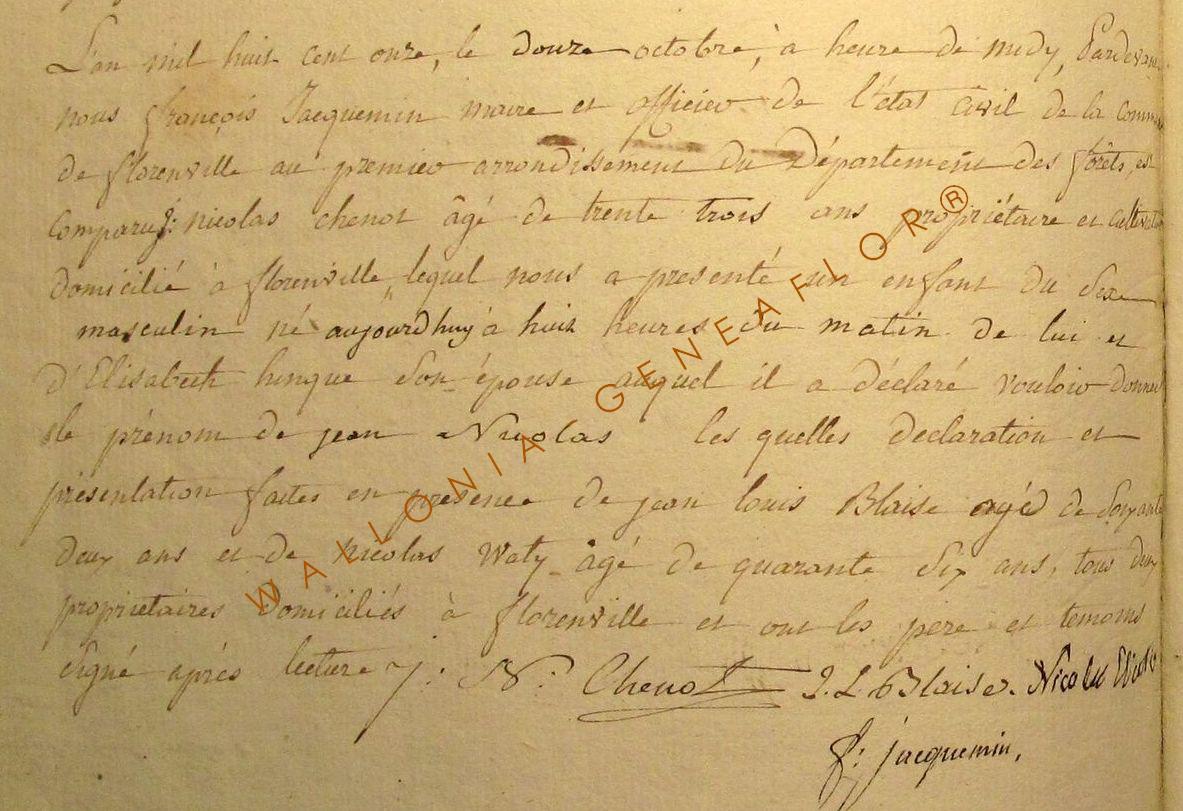 L'an mil huit cent onze, le douze octobre, à heure de midy, Pardevant
nous françois Jacquemin maire et officier de l'état civil de la commune
de florenville au premier arrondissement du Département des forêts, est
comparu nicolas chenot âgé de trente trois ans propriétaire et cultivateur
domicilié à florenville, lequel nous a presenté un enfant du Sexe
masculin né aujourd'huy à huit heures du matin de lui et
d'Elisabeth hinque Son épouse auquel il a déclaré vouloir donner
le prénom de jean Nicolas les quelles declaration et
présentation faites en presence de jean louis Blaise agé de Soixante
deux ans et de Nicolas Waty âgé de quarante Six ans, tous deux
proprietaires domiciliés à florenville et ont les pere et temoins
Signé après lecture N: Chenot J. L. Blaise. Nicolas
f: jacquemin.
WALLONIA GENEAFLOR®